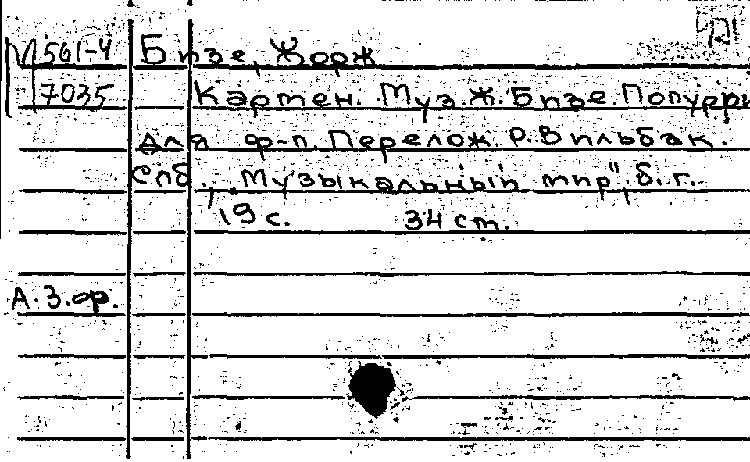 М 561-4 Бизе, Жорж
7035 Кармен. Муз. Ж. Бизе. Попурри
для ф-п. Перелож. Р. Вильбак.
Спб., „Музыкальный мир", б. г.
19 с. 34 см.
А. З. ор.